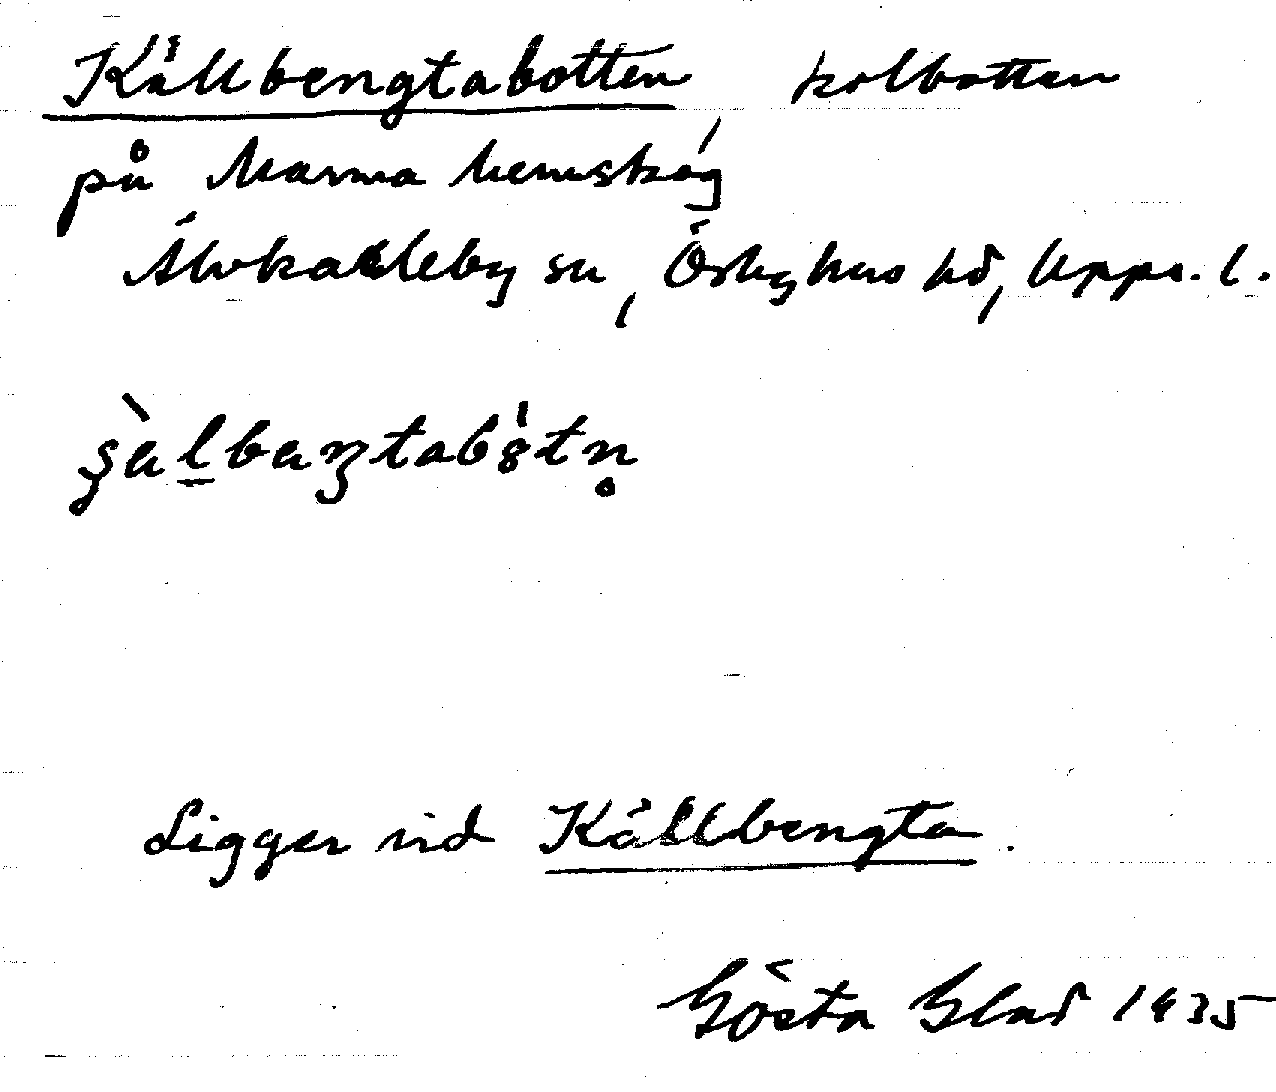 Källbengtabotten kolbotten
på Marma hemskog
Älvkarleby sn, Örbyhus hd, Upps. l.
Ligger vid Källbengta.
Gösta Blad 1935